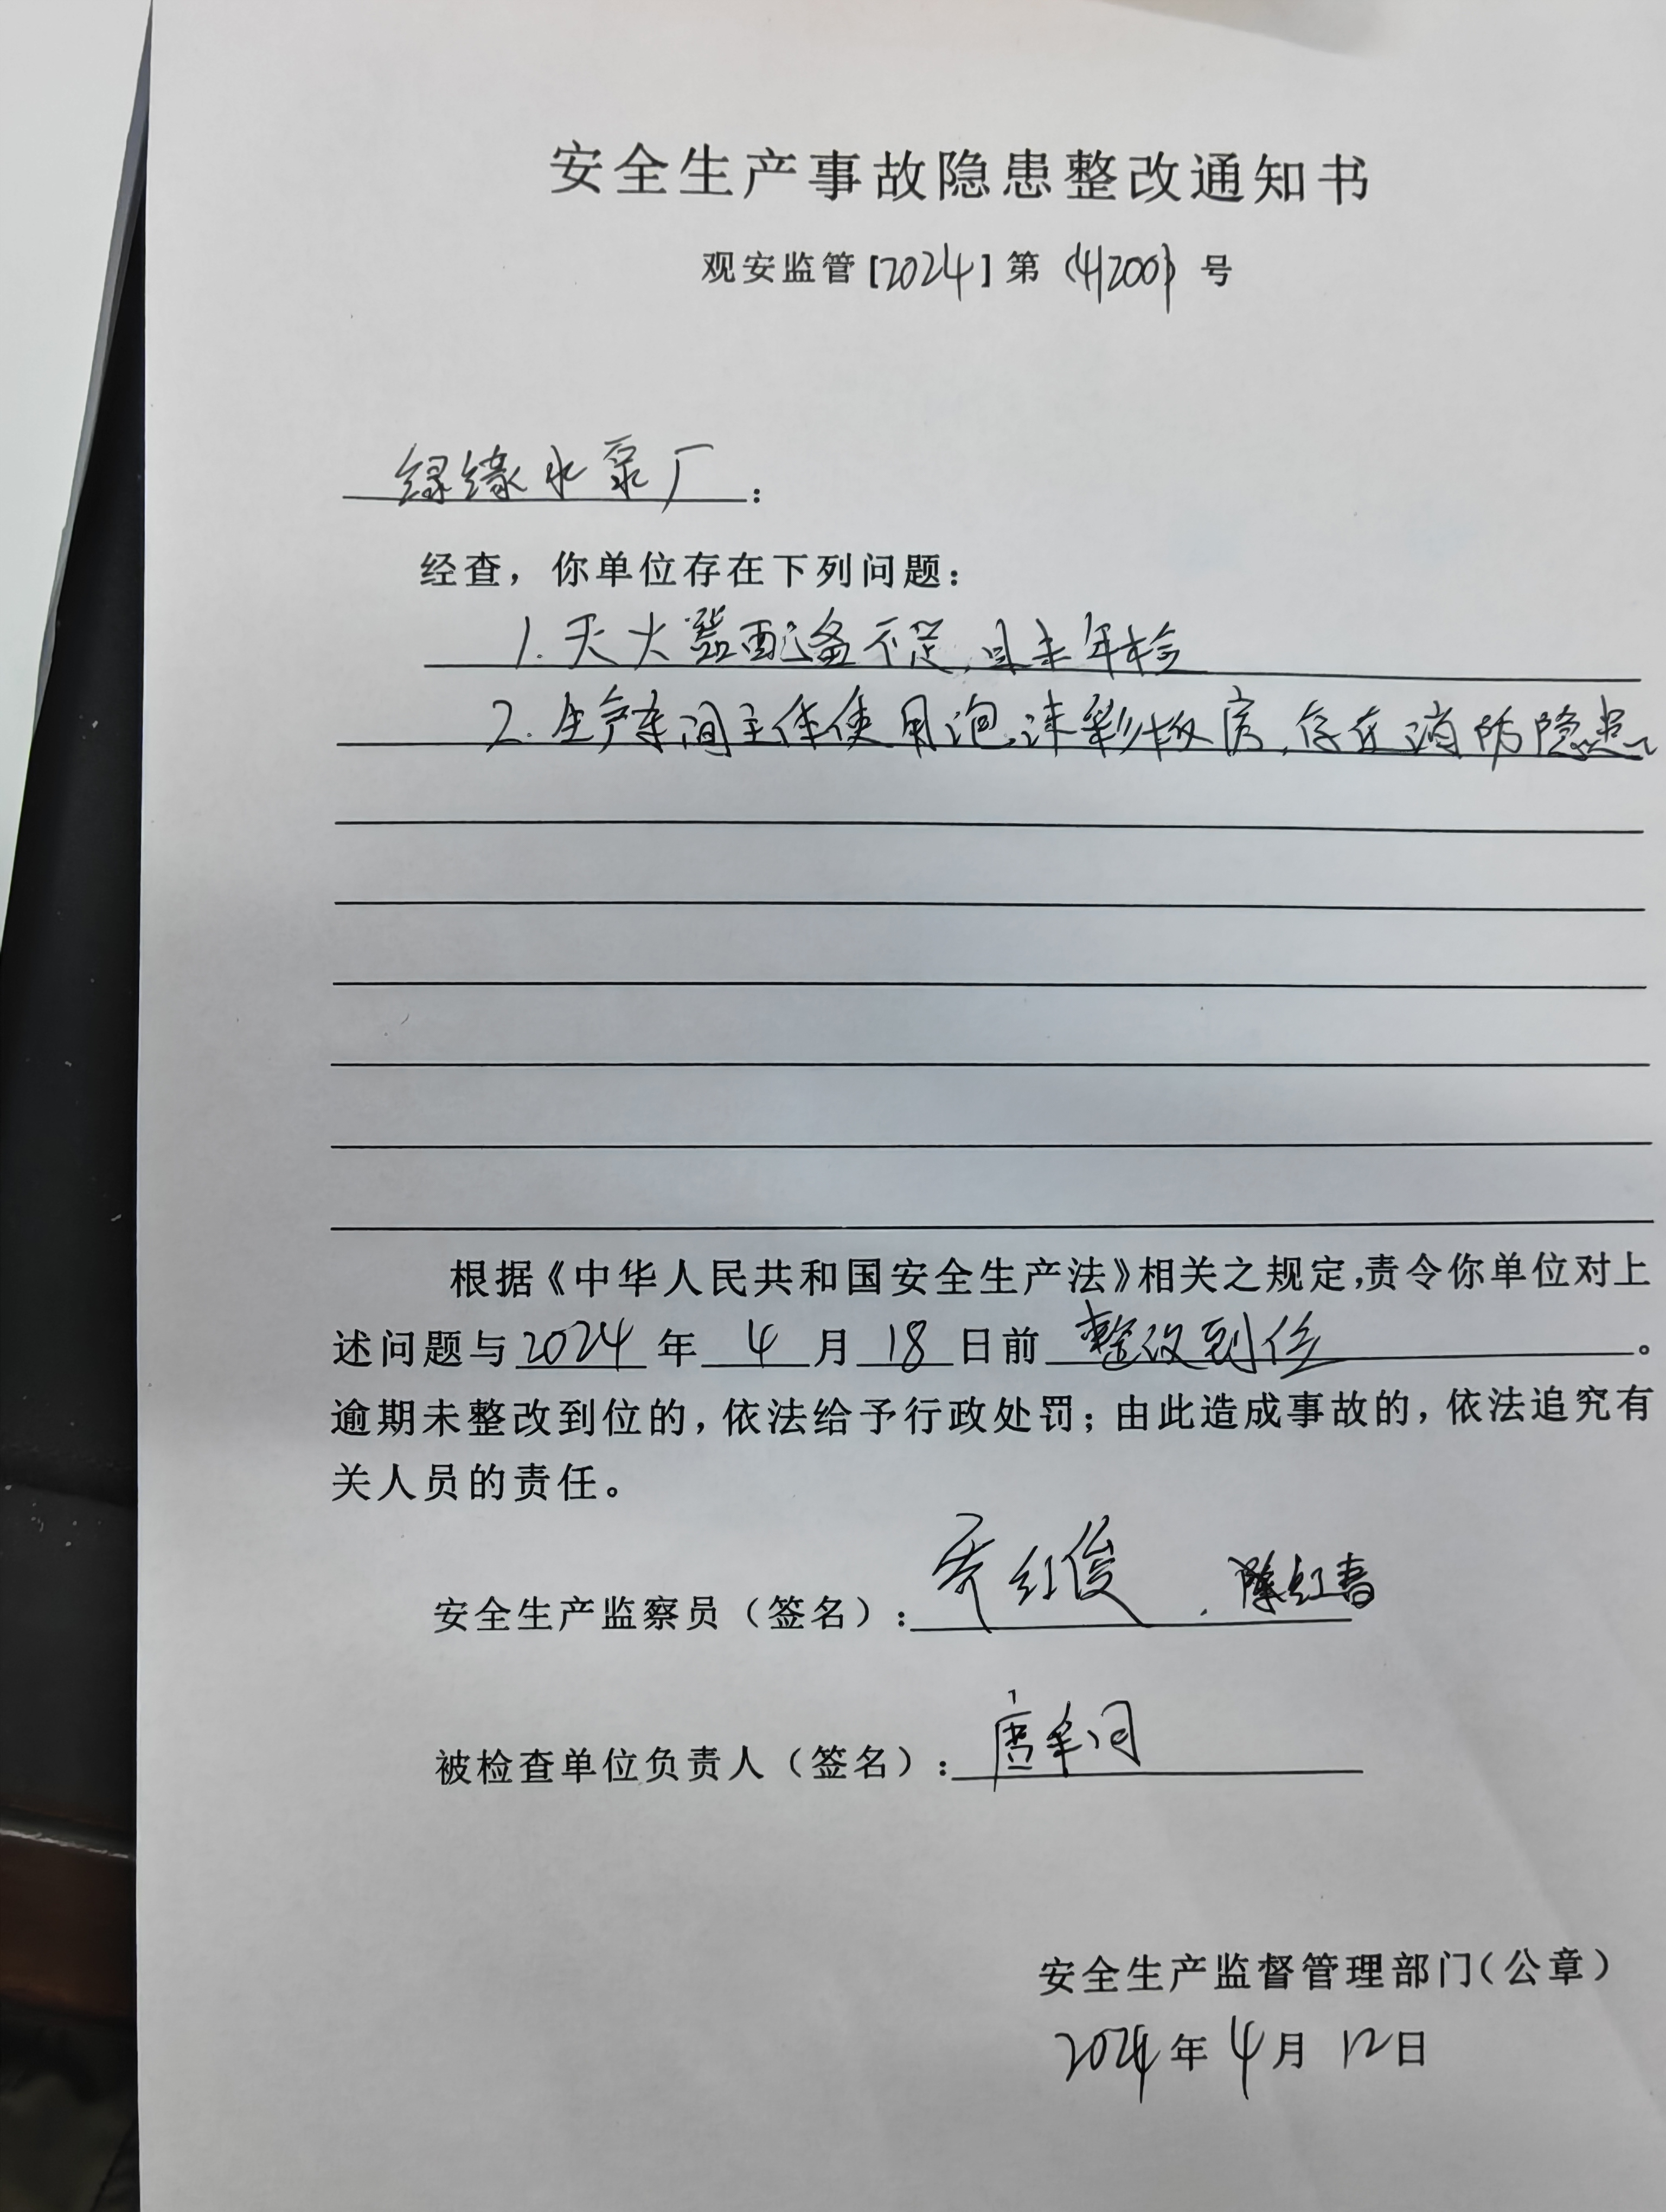 安全生产事故隐患整改通知书
观安监管[2024]第(412001)号
绿缘水泵厂:
经查，你单位存在下列问题:
1.灭火器配备不足,且未年检
2.生产车间主体使用泡沫彩板房,存在消防隐患。
根据《中华人民共和国安全生产法》相关之规定,责令你单位对上
述问题与2024年4月18日前整改到位。
逾期未整改到位的，依法给予行政处罚；由此造成事故的，依法追究有
关人员的责任。
安全生产监察员（签名）: 乔红俊.陈红春
被检查单位负责人（签名）: 唐
安全生产监督管理部门(公章)
2024年4月12日